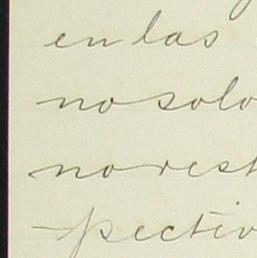 en las
no solo
no rest
pectiv